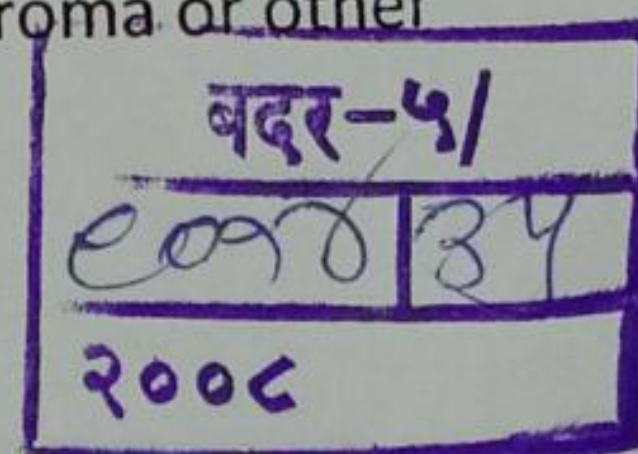 roma or other
बदर-५/
८०७४ ३५
२००८